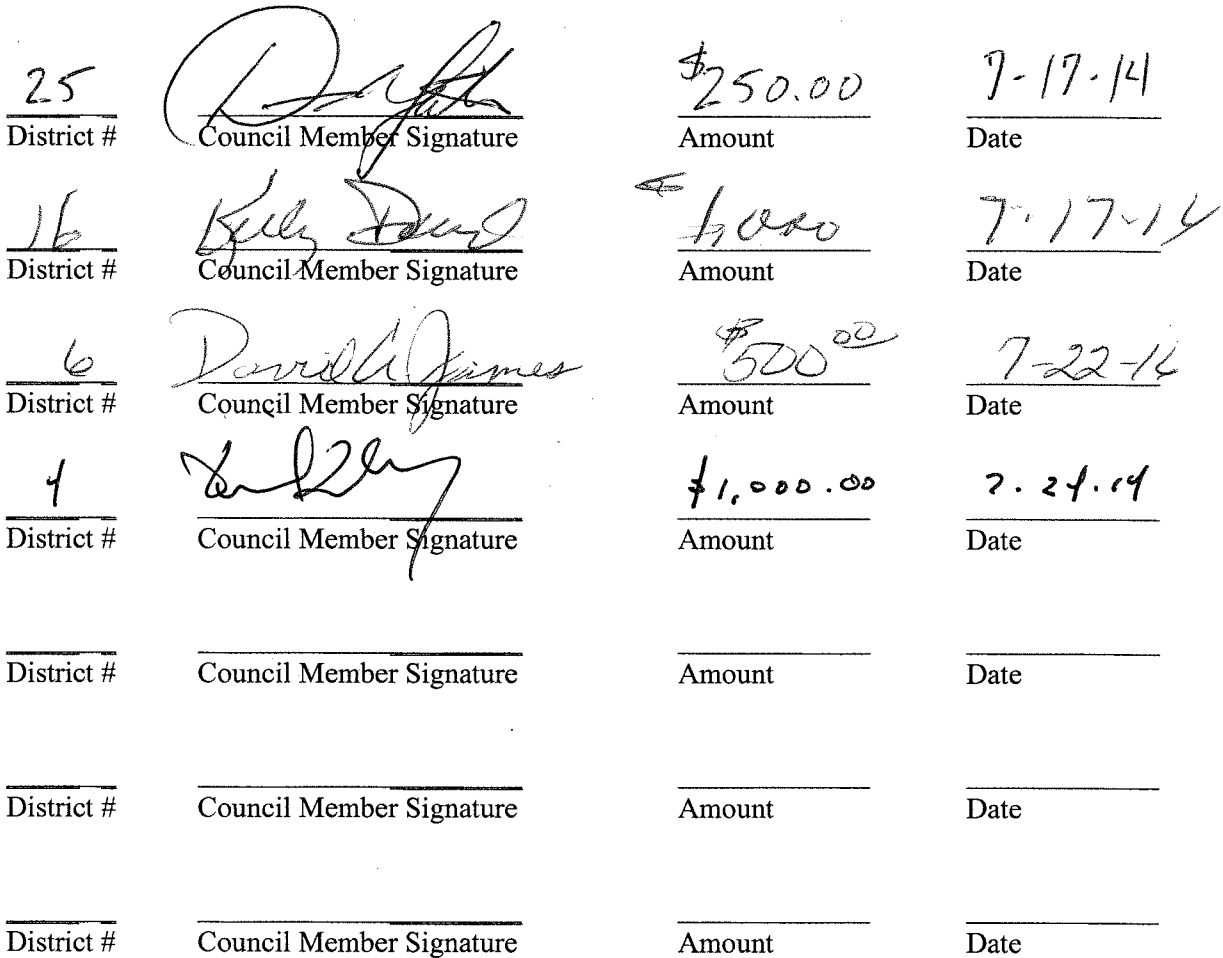 25 $250.00 7-17-14
District # Council Member Signature Amount Date
16 Kelly 1,000 7-17-14
District # Council Member Signature Amount Date
6 David A James $500 00 7-22-14
District # Council Member Signature Amount Date
4 $1,000.00 7.24.14
District # Council Member Signature Amount Date
District # Council Member Signature Amount Date
District # Council Member Signature Amount Date
District # Council Member Signature Amount Date